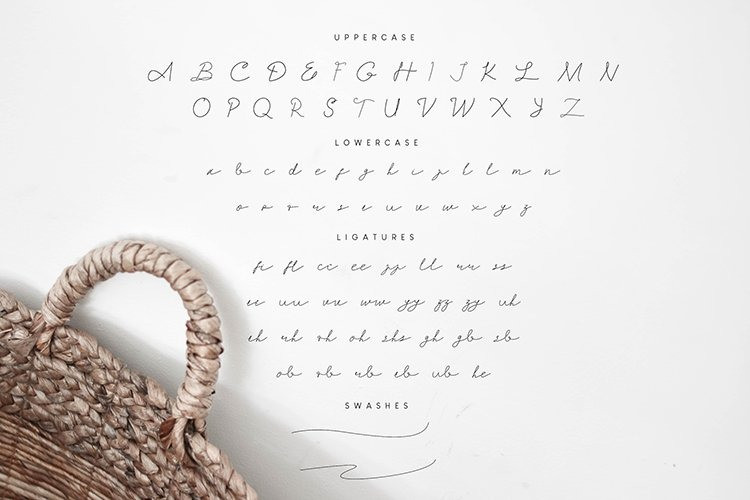 UPPERCASE
A B C D E F G H I J K L M N
O P Q R S T U V W X Y Z
LOWERCASE
a b c d e f g h i j k l l m n
o p q r s t u v w x y z
LIGATURES
fi fl cc ee jj ll rr ss
tt uu vv ww yy zz zy uh
th rh oh shs gh gb sb
ob rb tb ub he
SWASHES